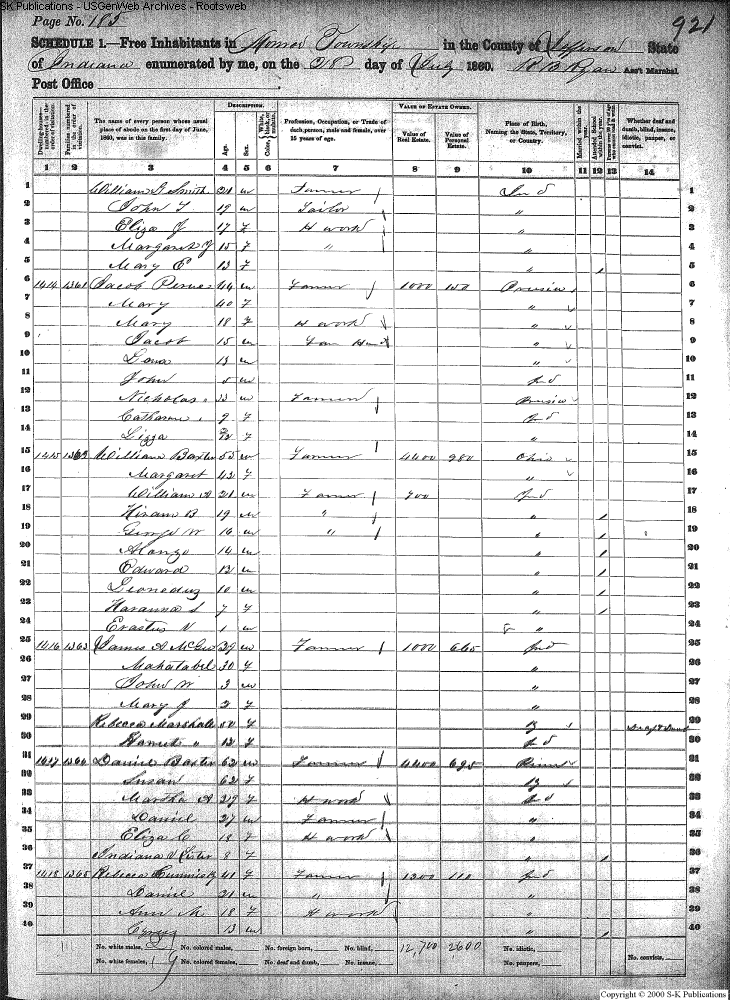 S-K Publications - USGenWeb Archives - Rootsweb
Page No. 185
921
SCHEDULE 1.—Free Inhabitants in Monroe Township in the County of Jefferson State
of Indiana enumerated by me, on the 28 day of July 1860. R B Ryan Ass't Marshal
Post Office
Dwelling-houses—numbered in the order of visitation.
Families numbered in the order of visitation.
The name of every person whose usual place of abode on the first day of June, 1860, was in this family.
DESCRIPTION.
Age.
Sex.
Color, White, black, or mulatto.
Profession, Occupation, or Trade of each person, male and female, over 15 years of age.
VALUE OF ESTATE OWNED.
Value of Real Estate.
Value of Personal Estate.
Place of Birth, Naming the State, Territory, or Country.
Married within the year.
Attended School within the year.
Whether deaf and dumb, blind, insane, idiotic, pauper, or convict.
1 2 3 4 5 6 7 8 9 10 11 12 13 14
1 William J Smith 21 m Farmer / Ind 1
2 John T 19 m Tailor / " 2
3 Eliza J 17 f H work / " 3
4 Margaret J 15 f " / 4
5 Mary E 13 f " / 5
6 1414 1361 Jacob 44 m Farmer / 1000 150 Prusia 6
7 Mary 40 f " 7
8 Mary 18 f H work " 8
9 Jacob 15 m Farm Hand " 9
10 13 m " 10
11 John 5 m Ind 11
12 Nicholas " m Farmer / Prusia 12
13 Catharine 9 f Ind 13
14 Lizza f " 14
15 1415 1362 William Baxter 55 m Farmer 4400 980 Ohio 15
16 Margaret 42 f " 16
17 William A 21 m Farmer / 700 Ind 17
18 Hiram B 19 m " / " / 18
19 George W 16 m " / " / 19
20 Alonzo 14 m " / 20
21 Edward 12 m " / 21
22 10 m " / 22
23 7 f " / 23
24 Erastus N 1 m " 24
25 1416 1363 James A 39 m Farmer / 1000 665 Ind 25
26 Mahatabel 30 f " 26
27 John W 3 m " 27
28 Mary J 2 f " 28
29 Rebecca Marshall 50 f Deaf & Dumb 29
30 " 12 f Ind 30
31 1417 1364 Daniel Baxter 62 m Farmer 4400 695 31
32 Susan 62 f 32
33 Martha A 29 f H work Ind 33
34 Daniel 27 m Farmer " 34
35 Eliza C 18 f H work " 35
36 Indiana V 8 f " / 36
37 1418 1365 Rebecca 41 f Farmer / 1200 110 Ind 37
38 Daniel 21 m " " 38
39 Ann M 18 f H work " 39
40 13 m " / 40
No. white males, No. colored males, No. foreign born, No. blind, 12,700 2600 No. idiotic,
No. white females, 19 No. colored females, No. deaf and dumb, No. insane, No. paupers, No. convicts,
Copyright © 2000 S-K Publications